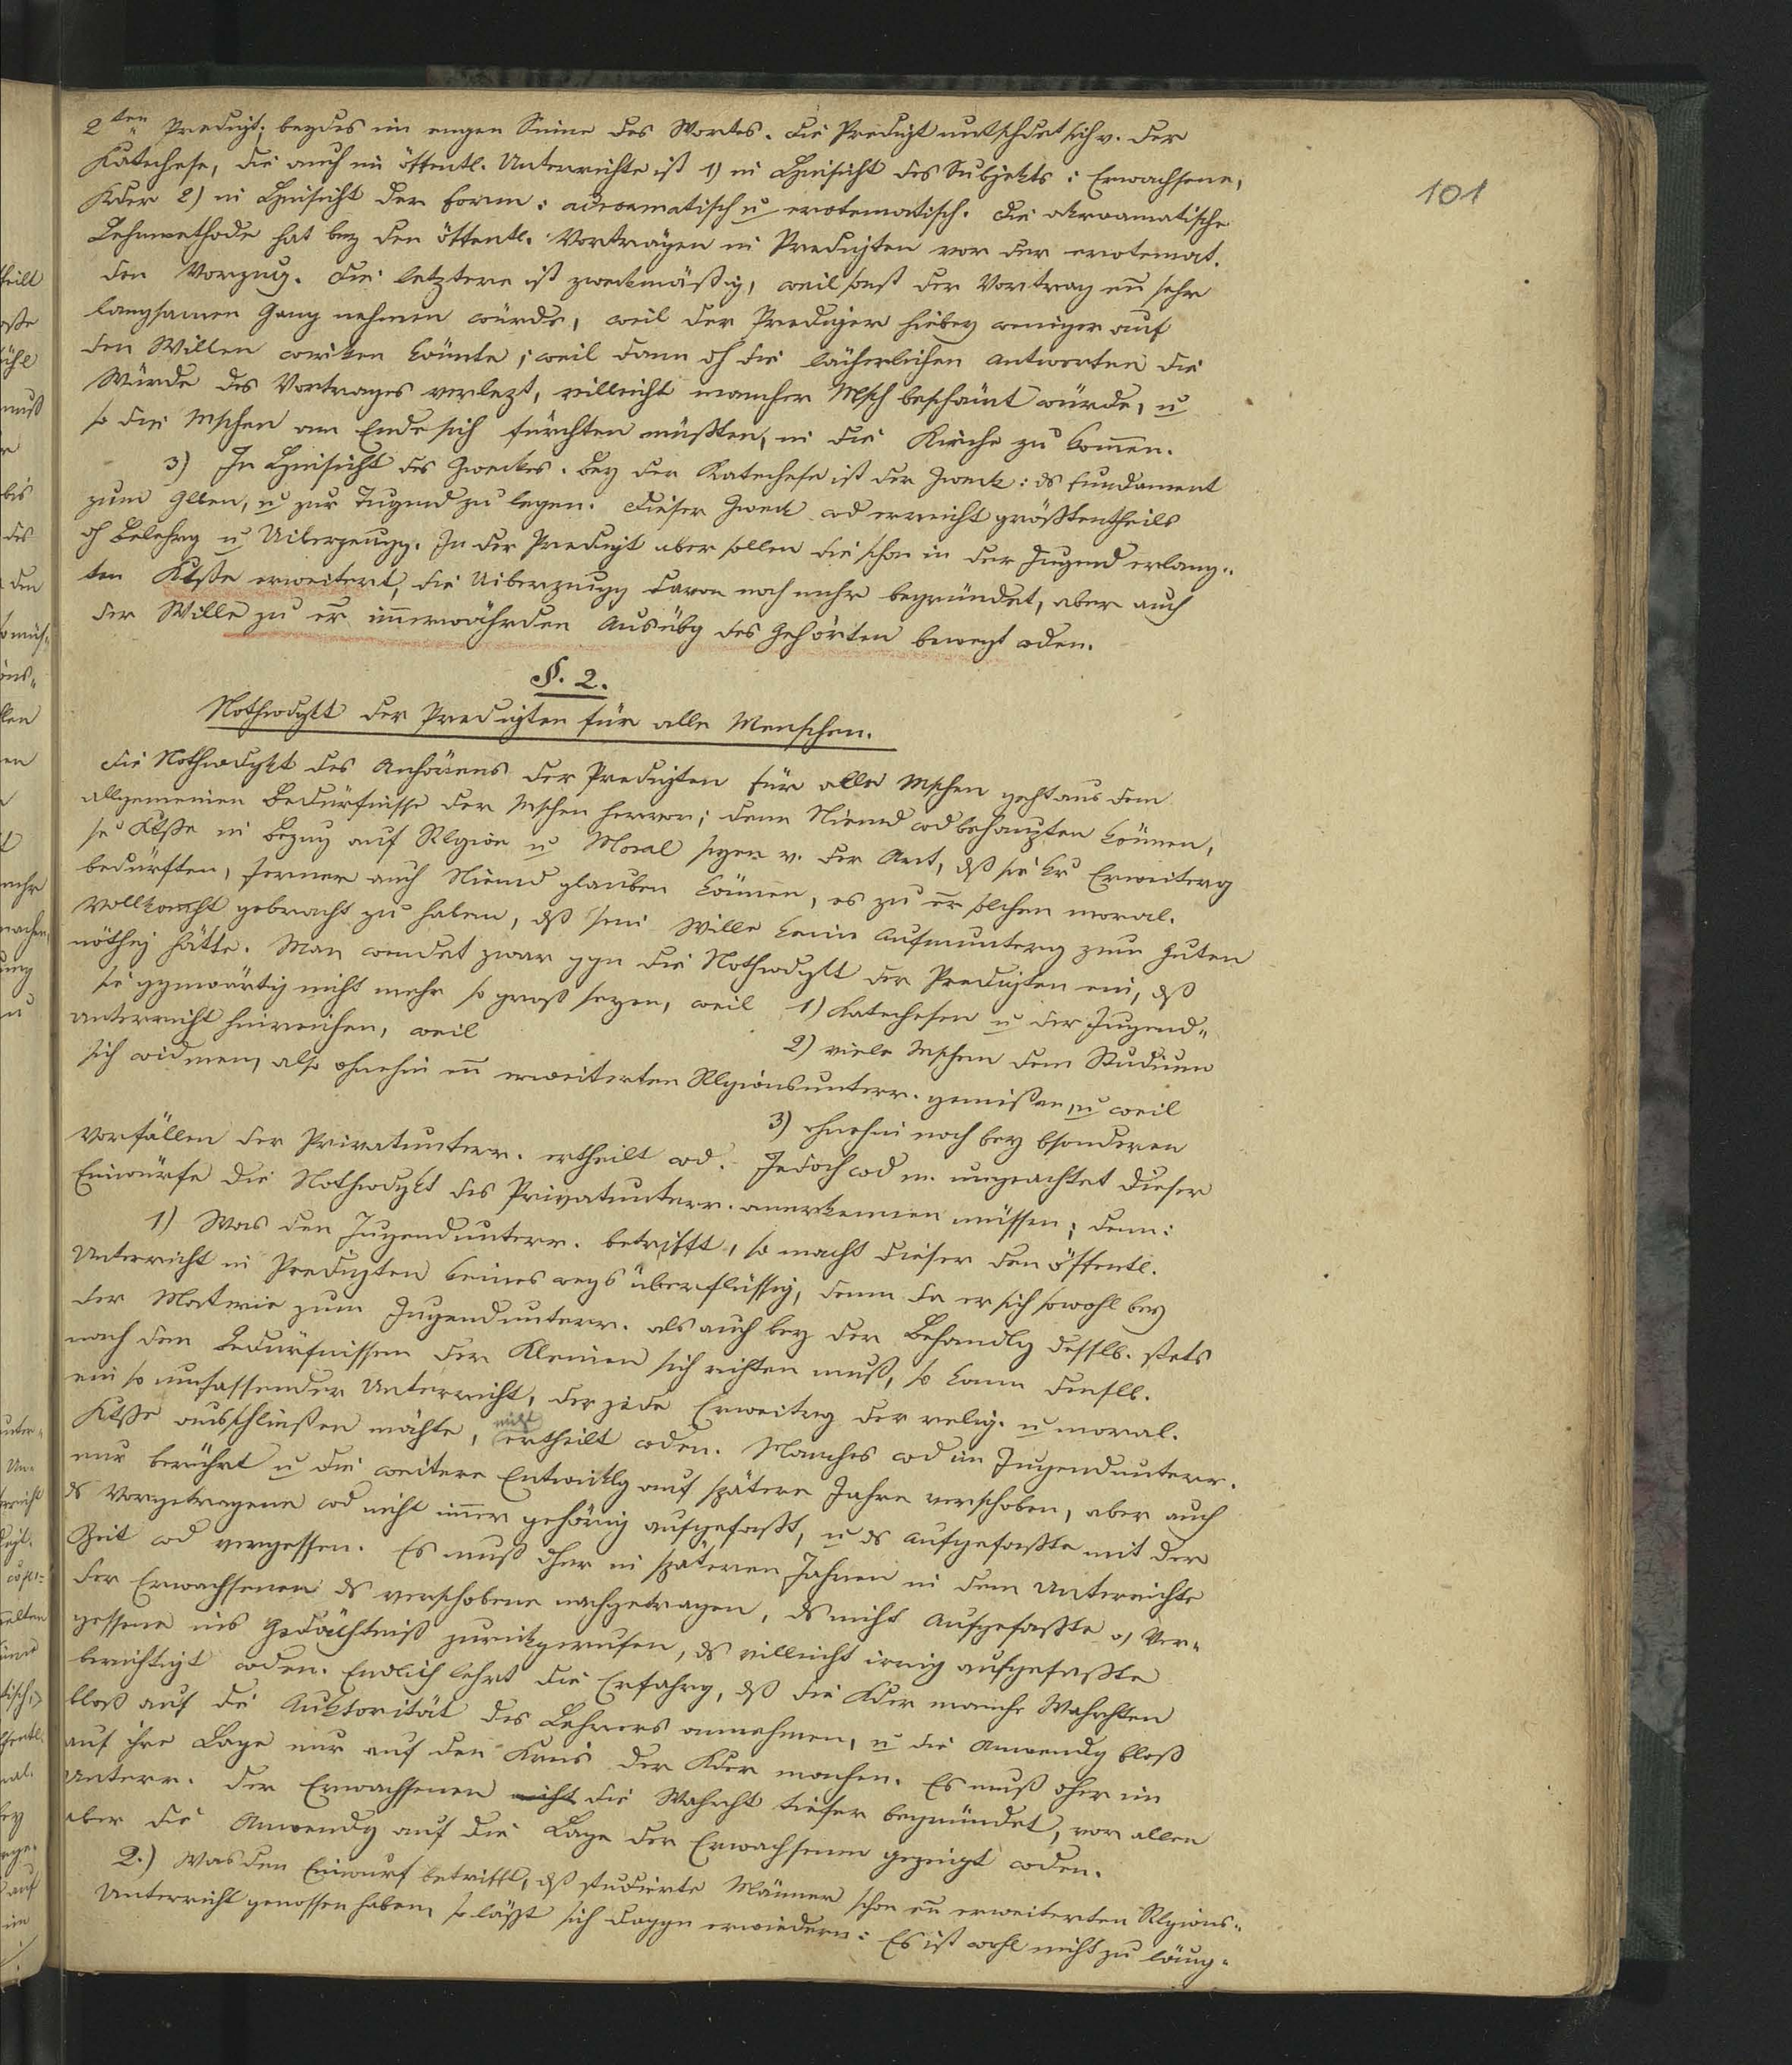 101
2ten Predigt; beydes im engen Sinne des Wortes. Die Predigt untschdet sich v. der
Katechese, die auch ein öffentl. Unterricht ist 1) in Hinsicht des Subjekts: Erwachsene,
Kder 2) in Hinsicht der Form: acroamatisch u erotematisch. Die akroamatische
Lehrmethode hat bey den öffentl. Vorträgen in Predigten vor der erotemat.
den Vorzug. Die letztere ist zweckmäßig, weil sonst der Vortrag en sehr
langsamen Gang nehmen würde, weil der Prediger hiebey weniger auf
den Willen wirken könnte; weil dann dh die lächerlichen Antworten die
Würde des Vortrages verlezt, villeicht mancher Msch beschämt würde, u
so die Mschen am Ende sich fürchten müßten, in die Kirche zu kommen.
3) In Hinsicht des Zweckes. Bey der Katechese ist der Zweck: ds Fundament
zum Glben, u zur Tugend zu legen. Dieser Zweck wd erreicht größtentheils
dh Belehrg u Uiberzeugg. In der Predigt aber sollen die schon in der Jugend erlang-
ten Ktße erweitert, die Uiberzeugg davon noch mehr begründet, aber auch
der Wille zu er immerwährden Ausübg des Gehörten bewegt wden.
§. 2.
Nothwdgkt der Predigten für alle Menschen.
Die Nothwdgkt des Anhörens der Predigten für alle Mschen geht aus dem
allgemeinen Bedürfnisse der Mschen hervor; denn Niemd wd behaupten können,
se Ktße in Bezug auf Rlgion u Moral seyen v. der Art, dß sie kr Erweiterg
bedürften, ferner auch Niemd glauben können, es zu er solchen moral.
Vollkommht gebracht zu haben, dß sein Wille keine Aufmunterg zum Guten
nöthig hätte. Man wendet zwar ggn die Nothwdgkt der Predigten ein, dß
sie ggnwärtig nicht mehr so groß seyen, weil 1) Katechesen u der Jugend-
unterricht hinreichen, weil
2) viele Mschen dem Studium
sich widmen, also ohnehin en erweiterten Rlgionsunterr. genießen, u weil
3) ohnehin noch bey bsonderen
Vorfällen der Privatunterr. ertheilt wd. Jedoch wd m. ungeachtet dieser
Einwürfe die Nothwdgkt des Privatunterr. anerkennen müssen; denn:
1) Was den Jugendunterr. betrifft, so macht dieser den öffentl.
Unterricht in Predigten keineswegs überflüssig, denn da er sich sowohl bey
der Materie zum Jugendunterr. als auch bey der Behandlg desslb. stets
nach den Bedürfnissen der Kleinen sich richten muß, so kann denslb.
ein so umfassender Unterricht, der jede Erweitrg der relig. u moral.
Ktße ausschließen möchte, nicht ertheilt wden. Manches wd im Jugendunterr.
nur berührt u die weitere Entwicklg auf spätere Jahre verschoben, aber auch
ds Vorgetragene wd nicht immer gehörig aufgefaßt, u ds Aufgefaßte mit der
Zeit wd vergessen. Es muß dher in späteren Jahren in dem Unterrichte
der Erwachsenen ds verschobene nachgetragen, ds nicht Aufgefaßte o, Ver-
gessene ins Gedächtniß zurückgerufen, ds villeicht irrig aufgefaßte
berichtigt wden. Endlich lehrt die Erfahrg, dß die Kder manche Wahrhten
bloß auf die Auktorität des Lehrers annehmen, u die Anwendg bloß
auf ihre Lage nur auf den Kreis der Kder machen. Es muß dher im
Unterr. der Erwachsenen nicht die Wahrht tiefer begründet, vor allen
aber die Anwendg auf die Lage der Erwachsenen gezeigt wden.
2.) Was den Einwurf betrifft, dß studierte Männer schon en erweiterten Rlgions-
Unterricht genossen haben, so läßt sich daggn erwiedern: Es ist wohl nicht zu läug-